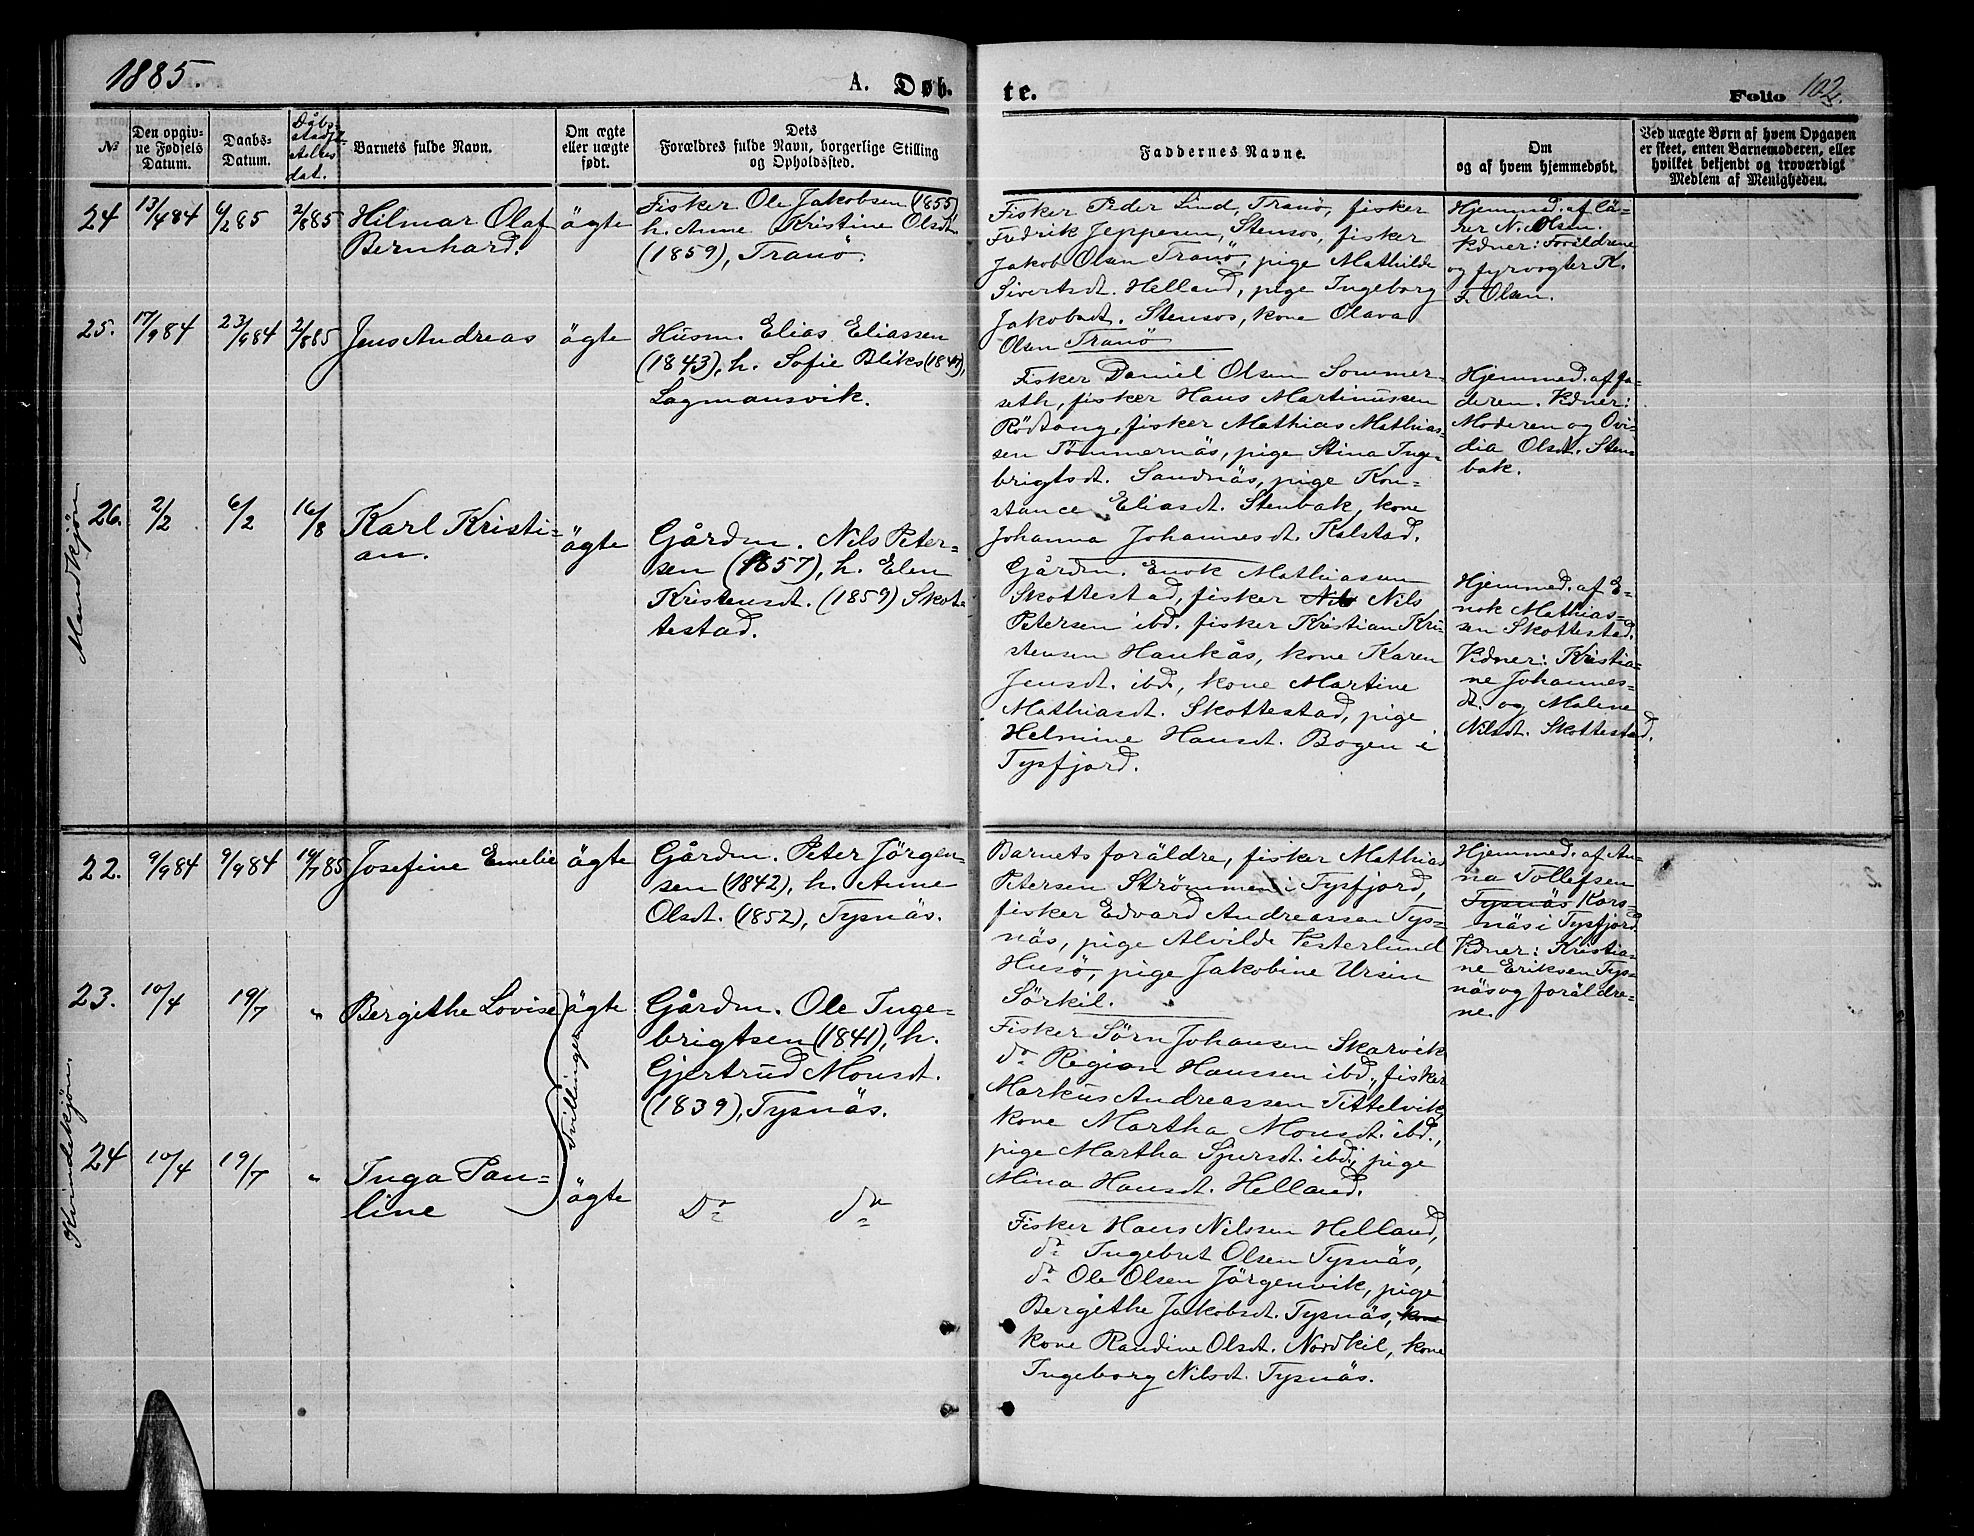 1885.
A. Døb-
te.
Folio 102.
№
Den opgiv-
ne Fødsels
Datum.
Daabs-
Datum.
Dåbs-
stadf.
Attes
dat.
Barnets fulde Navn.
Om ægte
eller uægte
født.
Dets
Forældres fulde Navn, borgerlige Stilling
og Opholdssted.
Faddernes Navne.
Om
og af hvem hjemmedøbt.
Ved uægte Børn af hvem Opgaven
er skeet, enten Barnemoderen, eller
hvilket bekjendt og troværdigt
Medlem af Menigheden.
Mandkjøn
24
13/4 84
6/2 85
2/8 85
Hilmar Olaf
Bernhard.
ägte
Fisker Ole Jakobsen (1855)
h. Anne Kristine Olsdt
(1859), Tranö.
Fisker Peder Lind, Tranö, fisker
Fredrik Jeppesen, Stensos, fisker
Jakob Olsen Tranö, pige Mathilde
Sivertsdt. Helland, pige Ingeborg
Jakobsdt. Stensos, kone Olava
Olsen Tranö
Hjemmed. af lä-
rer N. Olsen.
Vdner: Foräldrene
og fyrvogter K.
F. Olsen.
25.
17/9 84
23/9 84
2/8 85
Jens Andreas
ägte
Husm. Elias Eliassen
(1843), h. Sofie Bliks (1847),
Lagmansvik.
Fisker Daniel Olsen Sommer-
seth, fisker Hans Martinussen
Rödtang, fisker Mathias Mathias-
sen Tömmernäs, pige Stina Inge-
brigtsdt. Sandnäs, pige Kon-
stance Eliasdt. Stenbak, kone
Johanna Johannesdt. Kalstad.
Hjemmed. af fa-
deren. Vdner:
Moderen og Ovi-
dia Olsdt. Sten-
bak.
26.
2/2
6/2
16/8
Karl Kristi-
an.
ägte
Gårdm. Nils Peter-
sen (1857), h. Elen
Kristensdt. (1859) Skot-
testad.
Gårdm. Enok Mathiassen
Skottestad, fisker Nils Nils
Petersen ibd. fisker Kristian Kri-
stensen Haukås, kone Karen
Jensdt. ibd., kone Martine
Mathiasdt. Skottestad, pige
Helmine Hansdt. Bogen i
Tysfjord.
Hjemmed. af E-
nok Mathias-
sen Skottestad.
Vdner: Kristia-
ne Johannes-
dt. og Malene
Nilsdt. Skottestad.
Kvindekjön
22.
9/9 84
9/9 84
19/7 85
Josefine Emelie
ägte
Gårdm. Peter Jörgen-
sen (1842), h. Anne
Olsdt. (1852), Tysnäs.
Barnets foräldre, fisker Mathias
Petersen Strömmen i Tysfjord,
fisker Edvard Andreassen Tys-
näs, pige Alvilde Vesterlund
Husö, pige Jakobine Ursin
Sörkil.
Hjemmed. af An-
na Tollefsen
Tysnäs Kors-
näs i Tysfjord
Vdner: Kristia-
ne Eriksen Tys-
näs og foräldre-
ne.
23.
10/4
19/7
"
Bergithe Lovise
ägte
Tvillinger
Gårdm. Ole Inge-
brigtsen (1841), h.
Gjertrud Monsdt.
(1839), Tysnäs.
Fisker Sörn Johansen Skarvik
do Region Hanssen ibd., fisker
Markus Andreassen Tittelvik,
kone Martha Monsdt. ibd.,
pige Martha Sjursdt. ibd., pige
Mina Hansdt. Helland.
24
10/4
19/7
"
Inga Pau-
line
ägte
Do do
Fisker Hans Nilssen Helland,
do Ingebret Olsen Tysnäs,
do Ole Olsen Jörgenvik, pige
Bergithe Jakobsdt. Tysnäs, kone
kone Randine Olsdt. Nordkil, kone
Ingeborg Nilsdt. Tysnäs.